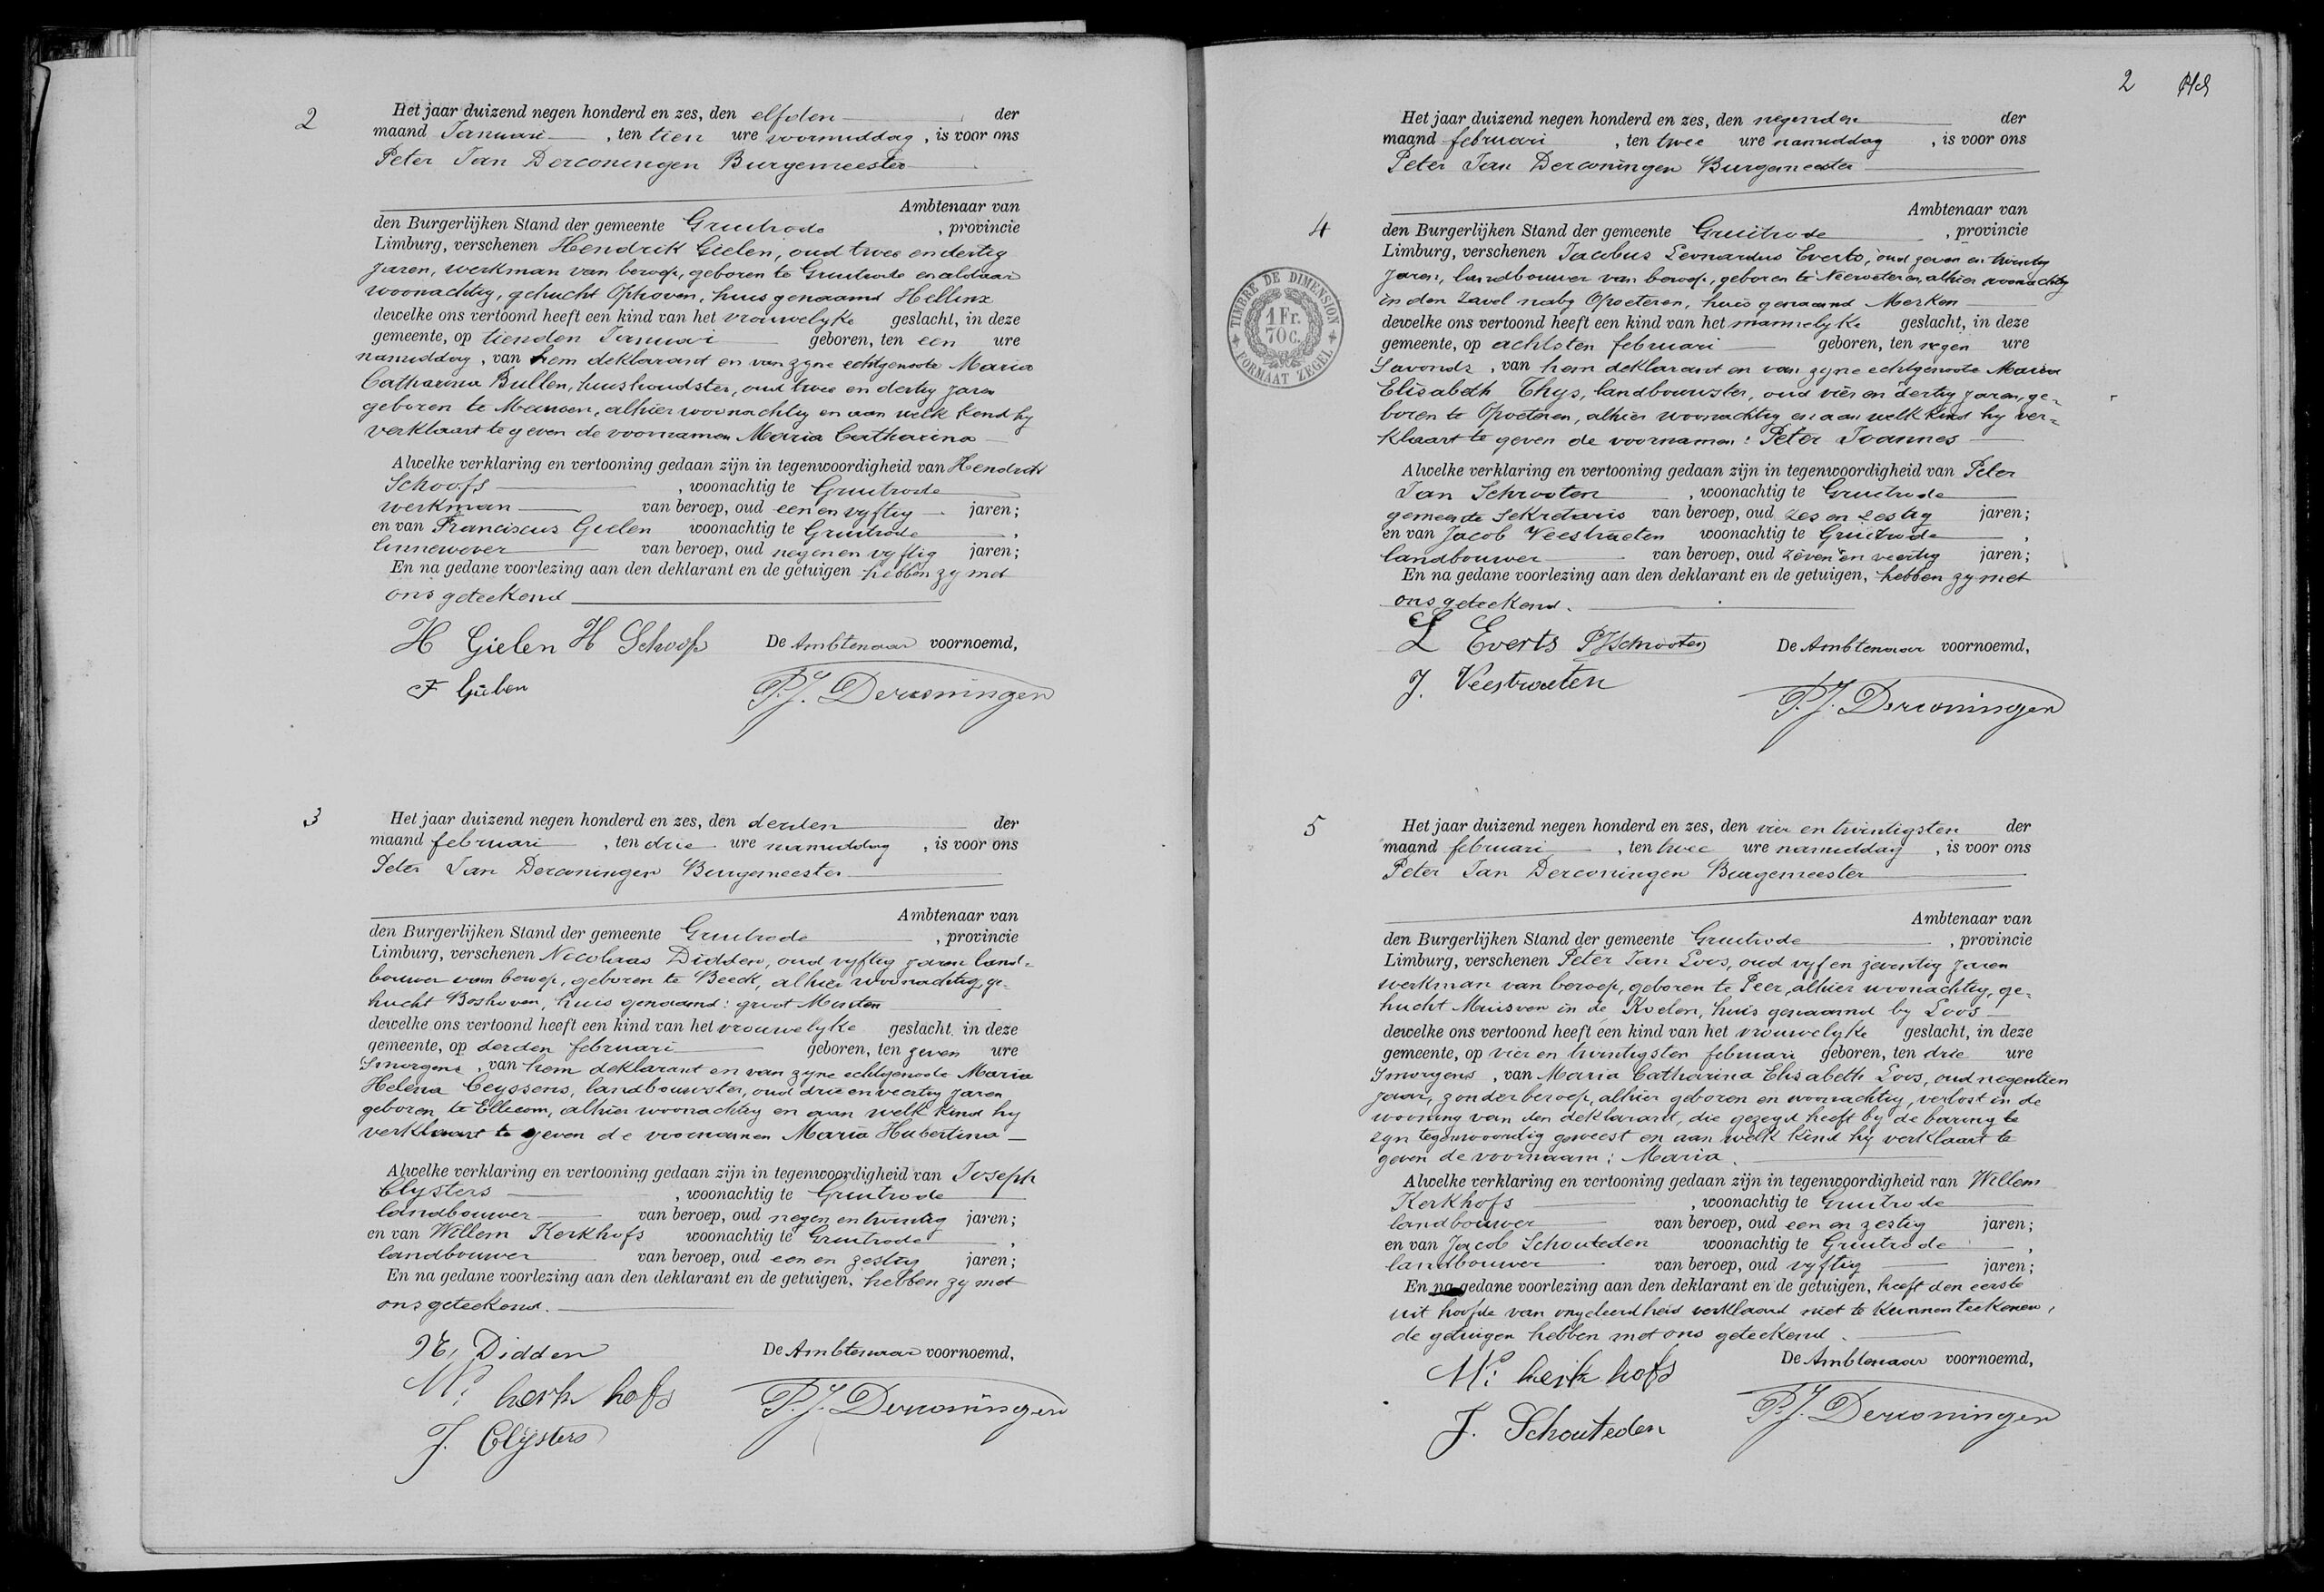 2
Het jaar duizend negen honderd en zes, den elfden der
maand Januari, ten tien ure voormiddag, is voor ons
Peter Jan Derconingen Burgemeester
Ambtenaar van
den Burgerlijken Stand der gemeente Gruitrode, provincie
Limburg, verschenen Hendrik Gielen, oud twee en dertig
jaren, werkman van beroep, geboren te Gruitrode en aldaar
woonachtig, gehucht Ophoven, huis genaamd Hellinx
dewelke ons vertoond heeft een kind van het vrouwelyke geslacht, in deze
gemeente, op tienden Januari geboren, ten een ure
namiddag, van hem deklarant en van zyne echtgenoote Maria
Catharina Bullen, huishoudster, oud twee en dertig jaren
geboren te Meeuwen, alhier woonachtig en aan welk kind hy
verklaart te geven de voornamen Maria Catharina
Alwelke verklaring en vertooning gedaan zijn in tegenwoordigheid van Hendrik
Schoofs, woonachtig te Gruitrode
werkman van beroep, oud een en vyftig jaren;
en van Franciscus Gielen woonachtig te Gruitrode,
linnewever van beroep, oud negen en vyftig jaren;
En na gedane voorlezing aan den deklarant en de getuigen hebben zy met
ons geteekend
H Gielen H Schoofs De Ambtenaar voornoemd,
F Gielen P.J. Derconingen
3
Het jaar duizend negen honderd en zes, den derden der
maand februari, ten drie ure namiddag, is voor ons
Peter Jan Derconingen Burgemeester
Ambtenaar van
den Burgerlijken Stand der gemeente Gruitrode, provincie
Limburg, verschenen Nicolaas Didden, oud vyftig jaren land-
bouwer van beroep, geboren te Beeck, alhier woonachtig, ge-
hucht Boshoven, huis genaamd: groot Menten
dewelke ons vertoond heeft een kind van het vrouwelyke geslacht, in deze
gemeente, op derden februari geboren, ten zeven ure
Smorgens, van hem deklarant en van zyne echtgenoote Maria
Helena Ceyssens, landbouwster, oud drie en veertig jaren
geboren te Ellicom, alhier woonachtig en aan welk kind hy
verklaart te geven de voornamen Maria Hubertina
Alwelke verklaring en vertooning gedaan zijn in tegenwoordigheid van Joseph
Clysters, woonachtig te Gruitrode
landbouwer van beroep, oud negen en twintig jaren;
en van Willem Kerkhofs woonachtig te Gruitrode,
landbouwer van beroep, oud een en zestig jaren;
En na gedane voorlezing aan den deklarant en de getuigen, hebben zy met
ons geteekend.
N, Didden De Ambtenaar voornoemd,
W: kerk hofs P.J. Derconingen
J. Clysters
2
Het jaar duizend negen honderd en zes, den negenden der
maand februari, ten twee ure namiddag, is voor ons
Peter Jan Derconingen Burgemeester
Ambtenaar van
4
den Burgerlijken Stand der gemeente Gruitrode, provincie
Limburg, verschenen Jacobus Leonardus Everts, oud zeven en twintig
jaren, landbouwer van beroep, geboren te Neeroeteren, alhier woonachtig
in den Zavel naby Opoeteren, huis genaamd Merken
dewelke ons vertoond heeft een kind van het mannelyke geslacht, in deze
gemeente, op achtsten februari geboren, ten negen ure
Savonds, van hem deklarant en van zyne echtgenoote Maria
Elisabeth Thys, landbouwster, oud vier en dertig jaren, ge-
boren te Opoeteren, alhier woonachtig en aan welk kind hy ver-
klaart te geven de voornamen: Peter Joannes
Alwelke verklaring en vertooning gedaan zijn in tegenwoordigheid van Peter
Jan Schrooten, woonachtig te Gruitrode
gemeente Sekretaris van beroep, oud zes en zestig jaren;
en van Jacob Veestraeten woonachtig te Gruitrode,
landbouwer van beroep, oud zeven en veertig jaren;
En na gedane voorlezing aan den deklarant en de getuigen, hebben zy met
ons geteekend.
L Everts PJSchrooten De Ambtenaar voornoemd,
J. Veestraeten P.J. Derconingen
TIMBRE DE DIMENSION
1 Fr.
70 c.
FORMAAT ZEGEL
5
Het jaar duizend negen honderd en zes, den vier en twintigsten der
maand februari, ten twee ure namiddag, is voor ons
Peter Jan Derconingen Burgemeester
Ambtenaar van
den Burgerlijken Stand der gemeente Gruitrode, provincie
Limburg, verschenen Peter Jan Loos, oud vyf en zeventig jaren
werkman van beroep, geboren te Peer, alhier woonachtig, ge-
hucht Muisven in de Koelen, huis genaamd by Loos
dewelke ons vertoond heeft een kind van het vrouwelyke geslacht, in deze
gemeente, op vier en twintigsten februari geboren, ten drie ure
Smorgens, van Maria Catharina Elisabeth Loos, oud negentien
jaar, zonder beroep, alhier geboren en woonachtig, verlost in de
wooning van den deklarant, die gezegd heeft by de baring te
zyn tegenwoordig geweest en aan welk kind hy verklaart te
geven de voornaam: Maria.
Alwelke verklaring en vertooning gedaan zijn in tegenwoordigheid van Willem
Kerkhofs, woonachtig te Gruitrode
landbouwer van beroep, oud een en zestig jaren;
en van Jacob Schouteden woonachtig te Gruitrode,
landbouwer van beroep, oud vyftig jaren;
En na gedane voorlezing aan den deklarant en de getuigen, heeft den eerste
uit hoofde van ongeleerdheid verklaard niet te kunnen teekenen,
de getuigen hebben met ons geteekend.
W: kerk hofs De Ambtenaar voornoemd,
J. Schouteden P.J. Derconingen